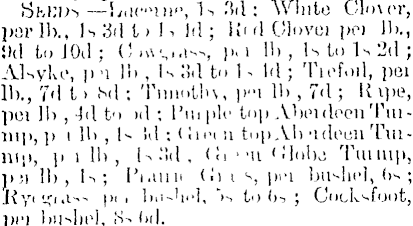 SEEDS.—Lucerne, 1s 3d; White Clover,
per lb., 1s 3d to 1s 4d; Red Clover per lb.,
9d to 10d; Cowgrass, per lb, 1s to 1s 2d;
Alsyke, per lb, 1s 3d to 1s 4d; Trefoil, per
lb., 7d to 8d; Timothy, per lb, 7d; Rape,
per lb, 4d to 5d; Purple top Aberdeen Tur-
nip, per lb, 1s 3d; Green top Aberdeen Tur-
nip, per lb, 1s 3d, Green Globe Turnip,
per lb, 1s; Prairie Grass, per bushel, 6s;
Ryegrass per bushel, 5s to 6s; Cocksfoot,
per bushel, 8s 6d.